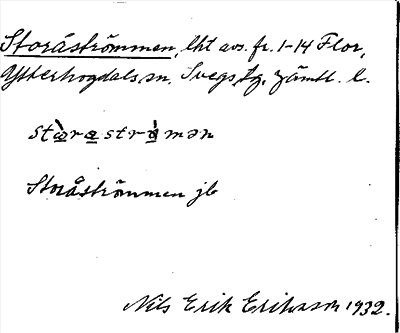 Storåströmmen, lht avs. fr. 1-14 Flor,
Ytterhogdals sn. Svegs tg. Jämtl. l.
stœ̀rαstrὰ̣mən
Storåströmmen jb
Nils Erik Eriksson 1932.